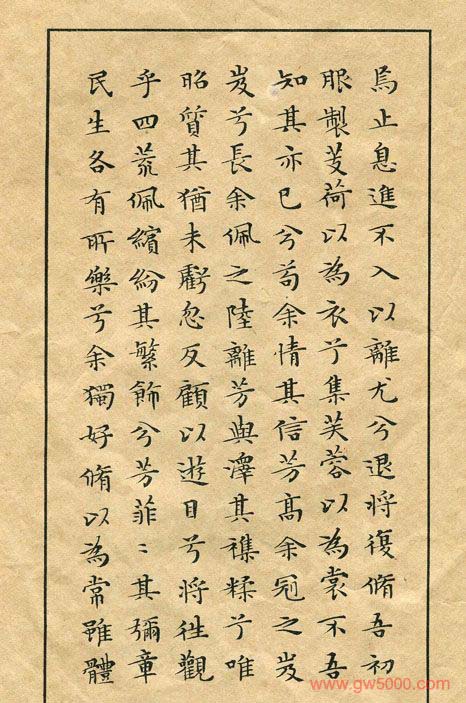 焉止息進不入以離尤兮退將復脩吾初
服製芰荷以為衣兮集芙蓉以為裳不吾
知其亦已兮苟余情其信芳高余冠之岌
岌兮長余佩之陸離芳與澤其襍糅兮唯
昭質其猶未虧忽反顧以遊目兮將往觀
乎四荒佩繽紛其繁飾兮芳菲〻其彌章
民生各有所樂兮余獨好脩以為常雖體
www.gw5000.com